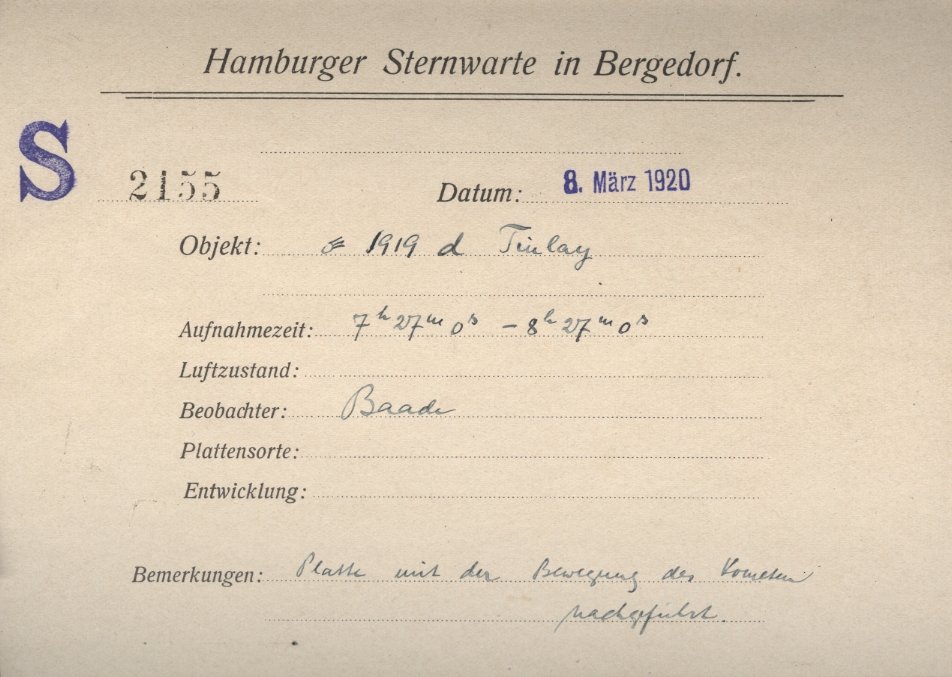 Hamburger Sternwarte in Bergedorf.
S
2155 Datum: 8. März 1920
Objekt: 1919 d Finlay
Aufnahmezeit: 7h 27m 0s – 8h 27m 0s
Luftzustand:
Beobachter: Baade
Plattensorte:
Entwicklung:
Bemerkungen: Platte mit der Bewegung des Kometen
nachgeführt.